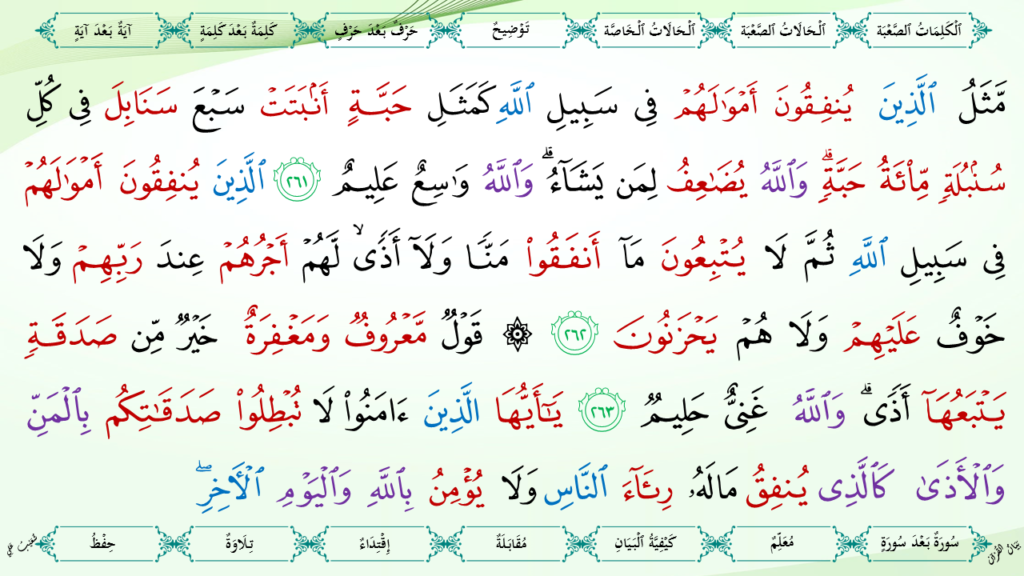 اَلْكَلِمَاتُ الصَّعْبَة اَلْحَالَاتُ الصَّعْبَة اَلْحَالَاتُ الْخَاصَّة تَوْضِيحٌ حَرْفٌ بَعْدَ حَرْفٍ كَلِمَةٌ بَعْدَ كَلِمَةٍ آيَةٌ بَعْدَ آيَةٍ
مَّثَلُ ٱلَّذِينَ يُنفِقُونَ أَمْوَٰلَهُمْ فِى سَبِيلِ ٱللَّهِ كَمَثَلِ حَبَّةٍ أَنۢبَتَتْ سَبْعَ سَنَابِلَ فِى كُلِّ
سُنۢبُلَةٍ مِّا۟ئَةُ حَبَّةٍ ۗ وَٱللَّهُ يُضَـٰعِفُ لِمَن يَشَآءُ ۗ وَٱللَّهُ وَٰسِعٌ عَلِيمٌ ٢٦١ ٱلَّذِينَ يُنفِقُونَ أَمْوَٰلَهُمْ
فِى سَبِيلِ ٱللَّهِ ثُمَّ لَا يُتْبِعُونَ مَآ أَنفَقُوا۟ مَنًّا وَلَآ أَذًى ۙ لَّهُمْ أَجْرُهُمْ عِندَ رَبِّهِمْ وَلَا
خَوْفٌ عَلَيْهِمْ وَلَا هُمْ يَحْزَنُونَ ٢٦٢ ۞ قَوْلٌ مَّعْرُوفٌ وَمَغْفِرَةٌ خَيْرٌ مِّن صَدَقَةٍ
يَتْبَعُهَآ أَذًى ۗ وَٱللَّهُ غَنِىٌّ حَلِيمٌ ٢٦٣ يَـٰٓأَيُّهَا ٱلَّذِينَ ءَامَنُوا۟ لَا تُبْطِلُوا۟ صَدَقَـٰتِكُم بِٱلْمَنِّ
وَٱلْأَذَىٰ كَٱلَّذِى يُنفِقُ مَالَهُۥ رِئَآءَ ٱلنَّاسِ وَلَا يُؤْمِنُ بِٱللَّهِ وَٱلْيَوْمِ ٱلْـَٔاخِرِ ۖ
سُورَةٌ بَعْدَ سُورَةٍ مُعَلِّمٌ كَيْفِيَّةُ الْبَيَانِ مُقَابَلَةٌ إِقْتِدَاءٌ تِلَاوَةٌ حِفْظٌ